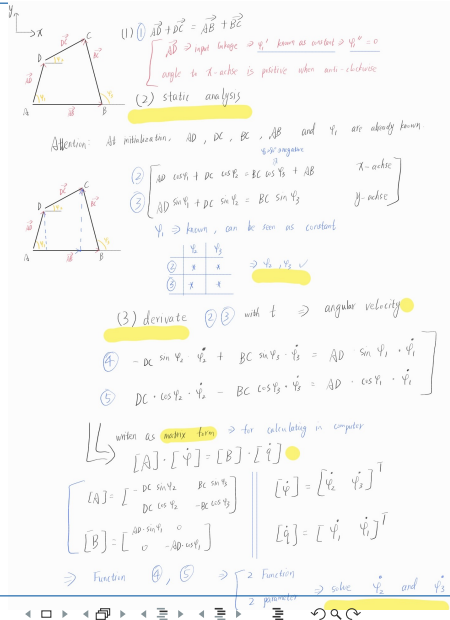 y
x
(1) ① AD + DC = AB + BC
AD ⇒ input linkage ⇒ φ₁' known as constant ⇒ φ₁'' = 0
angle to x-achse is positive when anti-clockwise
(2) static analysis
Attention: At initialization, AD, DC, BC, AB and φ₁ are already known
② AD cosφ₁ + DC cosφ₂ = BC cosφ₃ + AB x-achse
③ AD sinφ₁ + DC sinφ₂ = BC sinφ₃ y-achse
φ₁ ⇒ known, can be seen as constant
φ₂ φ₃
② x x
③ x x
⇒ φ₂, φ₃ ✓
(3) derivate ② ③ with t ⇒ angular velocity
④ - DC sin φ₂ · φ̇₂ + BC sin φ₃ · φ̇₃ = AD sin φ₁ · φ̇₁
⑤ DC · cos φ₂ · φ̇₂ - BC cos φ₃ · φ̇₃ = AD · cos φ₁ · φ̇₁
written as matrix form ⇒ for calculating in computer
[A] · [φ̇] = [B] · [q̇]
[A] = [ - DC sin φ₂ BC sin φ₃
DC cos φ₂ -BC cos φ₃ ]
[φ̇] = [φ̇₂ φ̇₃]ᵀ
[B] = [ AD·sinφ₁ 0
0 -AD·cosφ₁ ]
[q̇] = [φ̇₁ φ̇₁]ᵀ
⇒ Function ④, ⑤ ⇒ 2 Function
2 parameter ⇒ solve φ̇₂ and φ̇₃